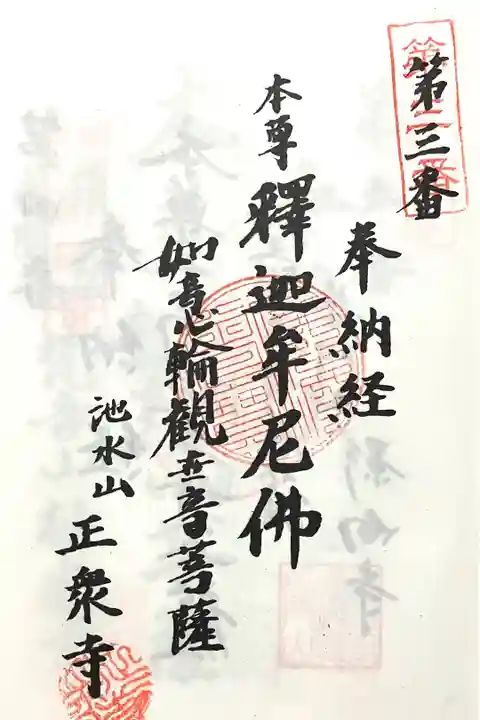 第三番
奉納経
本尊 釋迦牟尼佛
如意輪觀世音菩薩
池水山 正衆寺